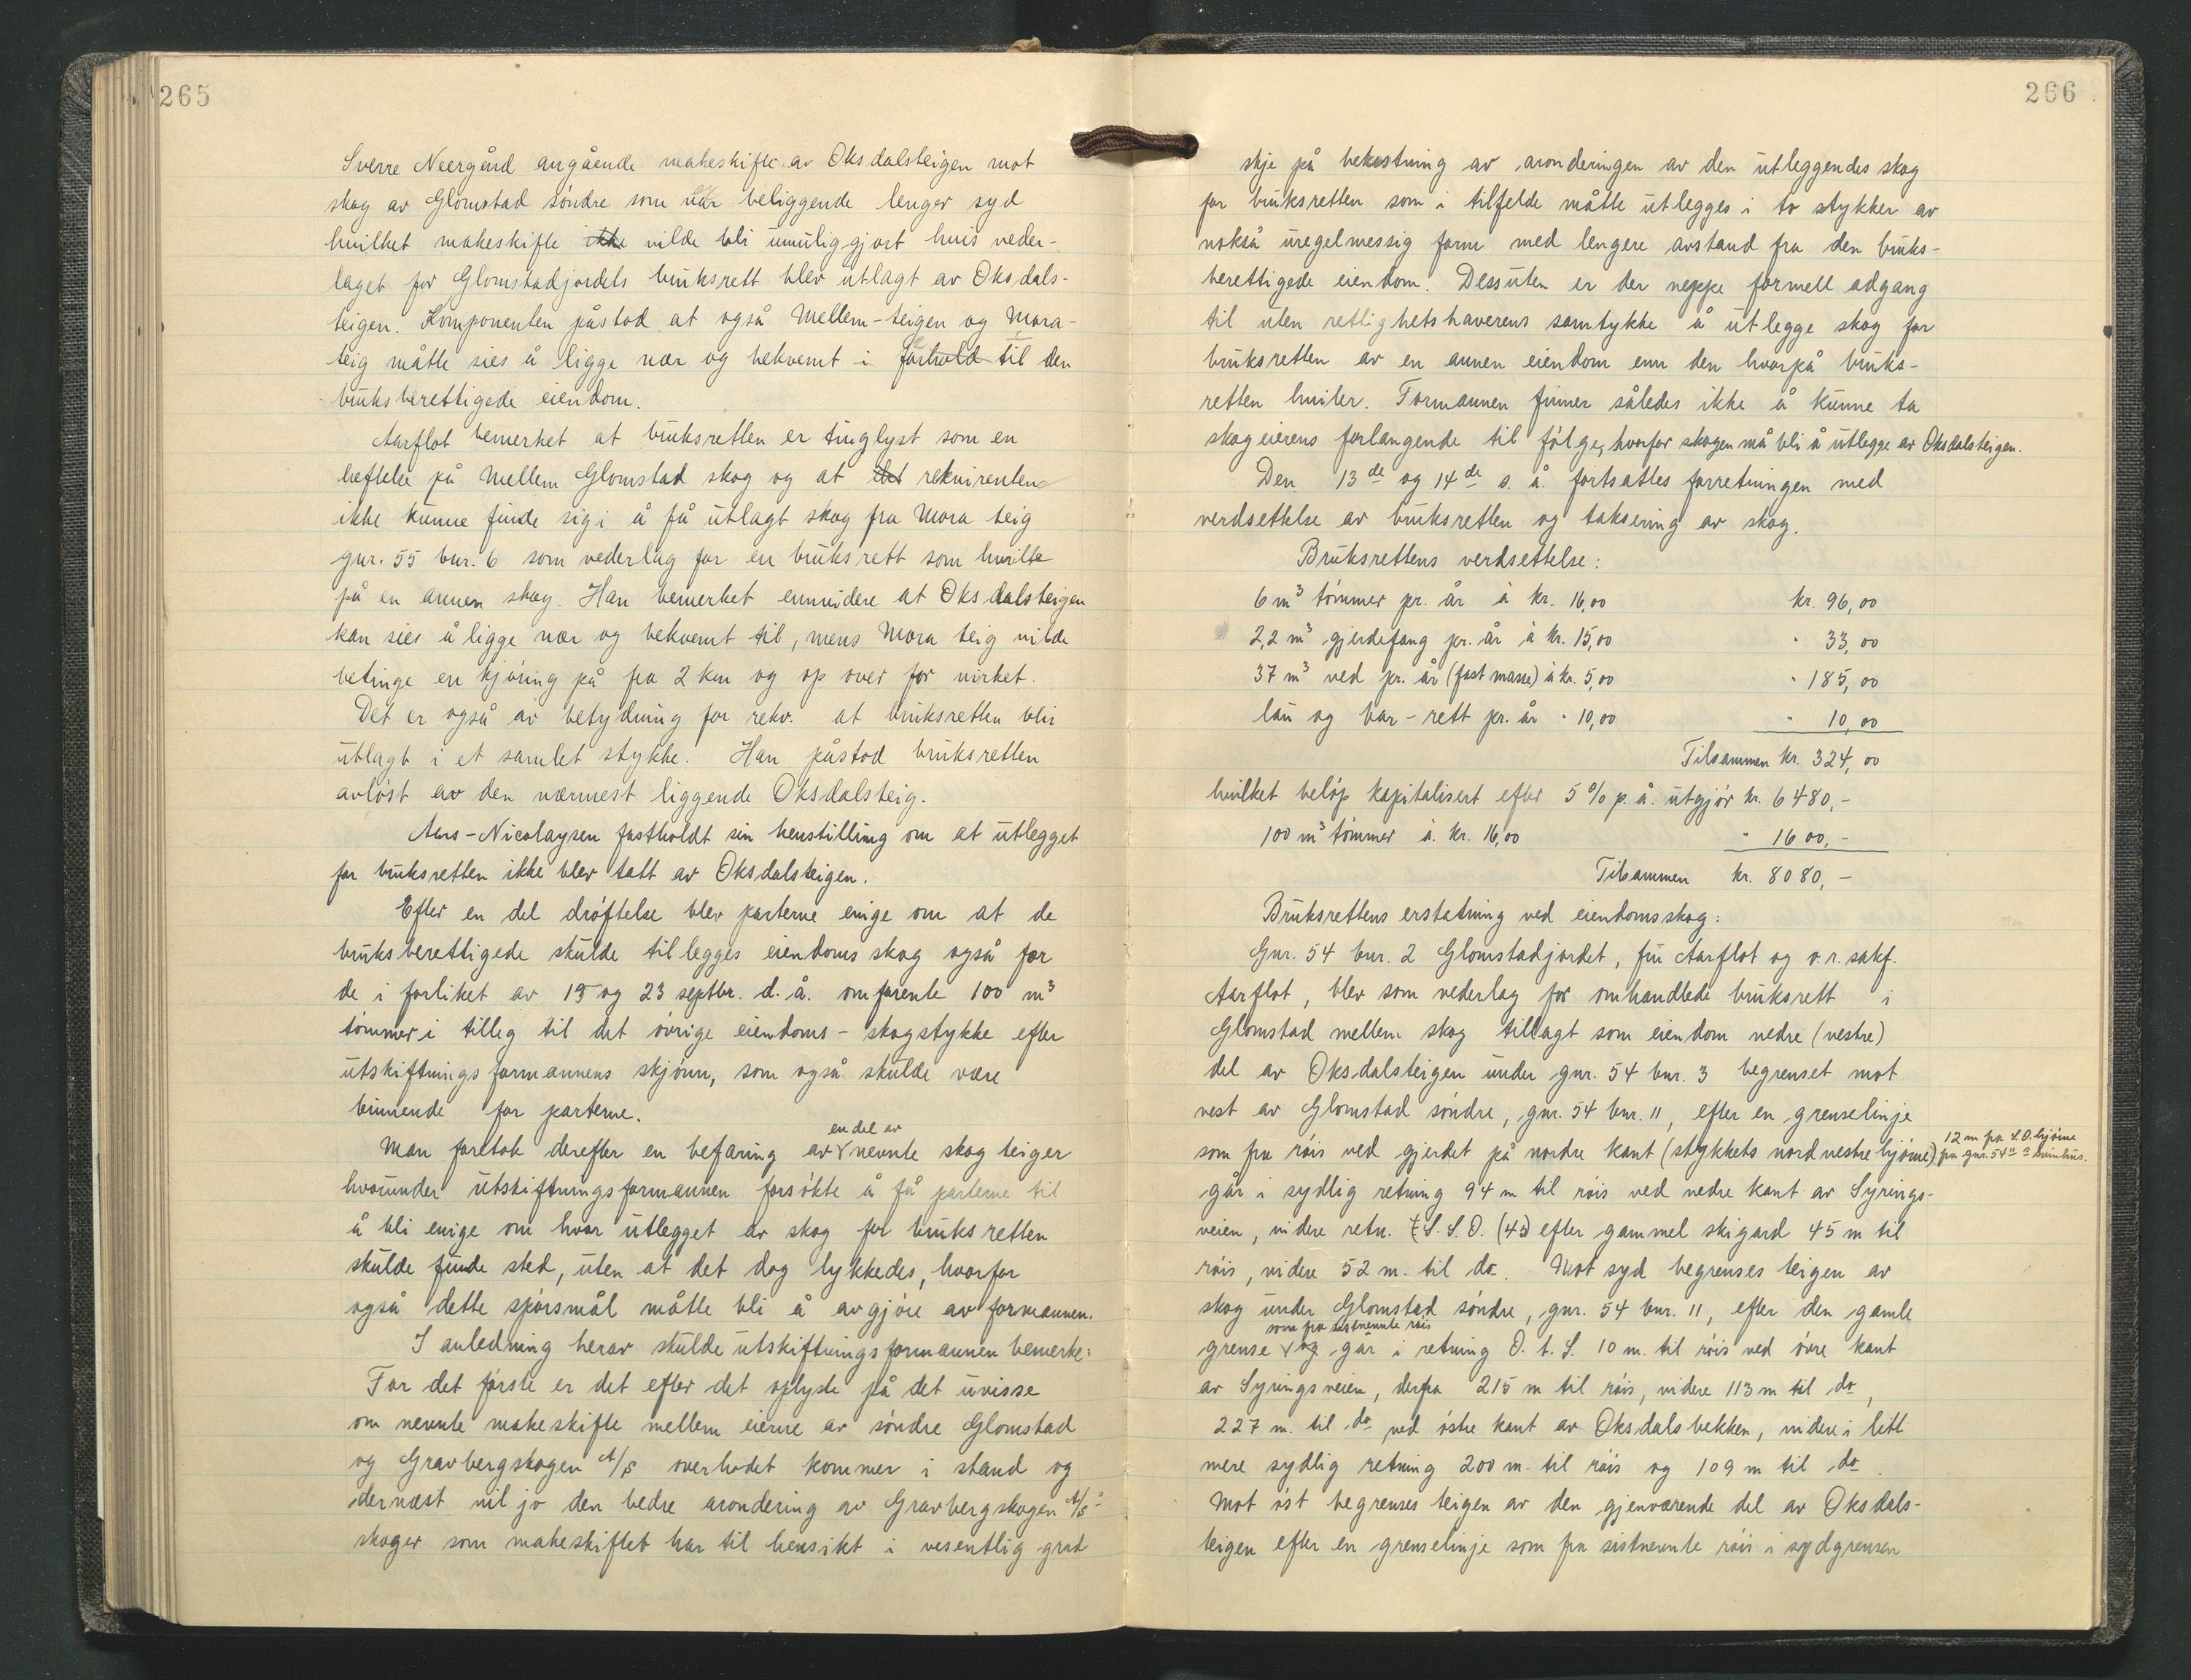 265
Sverre Neergård angående makeskifte av Oksdalsteigen mot
skog av Glomstad søndre som er beliggende lenger syd
hvilket makeskifte ikke vilde bli umuliggjort hvis veder-
laget for Glomstadjordets bruksrett blev utlagt av Oksdals-
teigen. Komponenten påstod at også Mellem-teigen og Mora-
teig måtte sies å ligge nær og bekvemt i forhold til den
bruksberettigede eiendom.
Aarflot bemerket at bruksretten er tinglyst som en
heftelse på Mellem Glomstad skog og at det rekvirenten
ikke kunne finde sig i å få utlagt skog fra Mora teig
gnr. 55 bnr. 6 som vederlag for en bruksrett som hvilte
på en annen skog. Han bemerket ennvidere at Oksdalsteigen
kan sies å ligge nær og bekvemt til, mens Mora teig vilde
betinge en kjøring på fra 2 km og op over for virket.
Det er også av betydning for rekv. at bruksretten blir
utlagt i et samlet stykke. Han påstod bruksretten
avløst av den nærmest liggende Oksdalsteig.
Aars-Nicolaysen fastholdt sin henstilling om at utlegget
for bruksretten ikke blev tatt av Oksdalsteigen.
Efter en del drøftelse blev parterne enige om at de
bruksberettigede skulde tillegges eiendoms skog også for
de i forliket av 15 og 23 septbr. d. å. omforente 100 m³
tømmer i tillegg til det øvrige eiendoms-skogstykke efter
utskiftningsformannens skjønn, som også skulde være
bindende for parterne.
en del av
Man foretok derefter en befaring av nevnte skog teiger
hvorunder utskiftningsformannen forsøkte å få parterne til
å bli enige om hvor utlegget av skog for bruksretten
skulde finde sted, uten at det dog lykkedes, hvorfor
også dette spørsmål måtte bli å avgjøre av formannen.
I anledning herav skulde utskiftningsformannen bemerke:
For det første er det efter det oplyste på det uvisse
om nevnte makeskifte mellem eierne av søndre Glomstad
og Gravbergskogen A/S overhodet kommer i stand og
dernæst vil jo den bedre arondering av Gravbergskogen A/S
skoger som makeskiftet har til hensikt i vesentlig grad
266
skje på bekostning av aronderingen av den utleggendes skog
for bruksretten som i tilfelde måtte utlegges i to stykker av
nokså uregelmessig form med lengere avstand fra den bruks-
berettigede eiendom. Dessuten er der neppe formell adgang
til uten rettighetshaverens samtykke å utlegge skog for
bruksretten av en annen eiendom enn den hvorpå bruks-
retten hviler. Formannen finner således ikke å kunne ta
skogeierens forlangende til følge, hvorfor skogen må bli å utlegge av Oksdalsteigen.
Den 13de og 14de s. å. fortsattes forretningen med
verdsettelse av bruksretten og taksering av skog.
Bruksrettens verdsettelse:
6 m³ tømmer pr. år à kr. 16,00 kr. 96,00
2,2 m³ gjerdefang pr. år à kr. 15,00 " 33,00
37 m³ ved pr. år (fast masse) à kr. 5,00 " 185,00
lau og bar-rett pr. år " 10,00 " 10,00
Tilsammen kr. 324,00
hvilket beløp kapitalisert efter 5 % p. å. utgjør kr. 6480,-
100 m³ tømmer à kr. 16,00 " 1600,-
Tilsammen kr. 8080,-
Bruksrettens erstatning ved eiendomsskog:
Gnr. 54 bnr. 2 Glomstadjordet, fru Aarflot og o.r.sakf.
Aarflot, blev som vederlag for omhandlede bruksrett i
Glomstad mellem skog tillagt som eiendom nedre (vestre)
del av Oksdalsteigen under gnr. 54 bnr. 3 begrenset mot
vest av Glomstad søndre, gnr. 54 bnr. 11, efter en grenselinje
som fra røis ved gjerdet på nordre kant (stykkets nordvestre hjørne) 12 m fra S.O. hjørne
fra gnr. 54
går i sydlig retning 94 m til røis ved nedre kant av Syrings-
veien, videre retn. S. S. O. (45) efter gammel skigard 45 m til
røis, videre 52 m. til do. Mot syd begrenses teigen av
skog under Glomstad søndre, gnr. 54 bnr. 11, efter den gamle
som fra sistnevnte røis
grense og går i retning O. t. S. 10 m. til røis ved øvre kant
av Syringsveien, derfra 215 m til røis, videre 113 m til do,
227 m. til do ved østre kant av Oksdalsbekken, videre i litt
mere sydlig retning 200 m. til røis og 109 m til do.
Mot øst begrenses teigen av den gjenværende del av Oksdals-
teigen efter en grenselinje som fra sistnevnte røis i sydgrensen